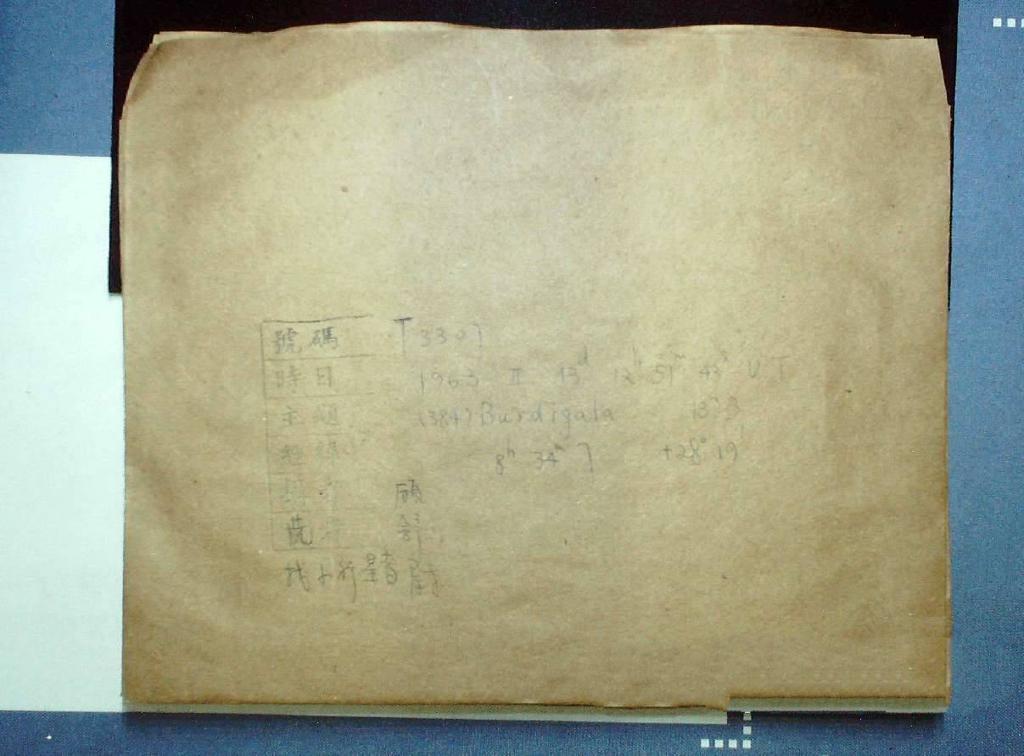 號碼 T 3307
時日 1963 II 13ᵈ 12ʰ 51ᵐ 43ˢ UT
主題 (384) Burdigala 13.3
8ʰ 34ᵐ 7 +28° 19'
顧
找小行星者